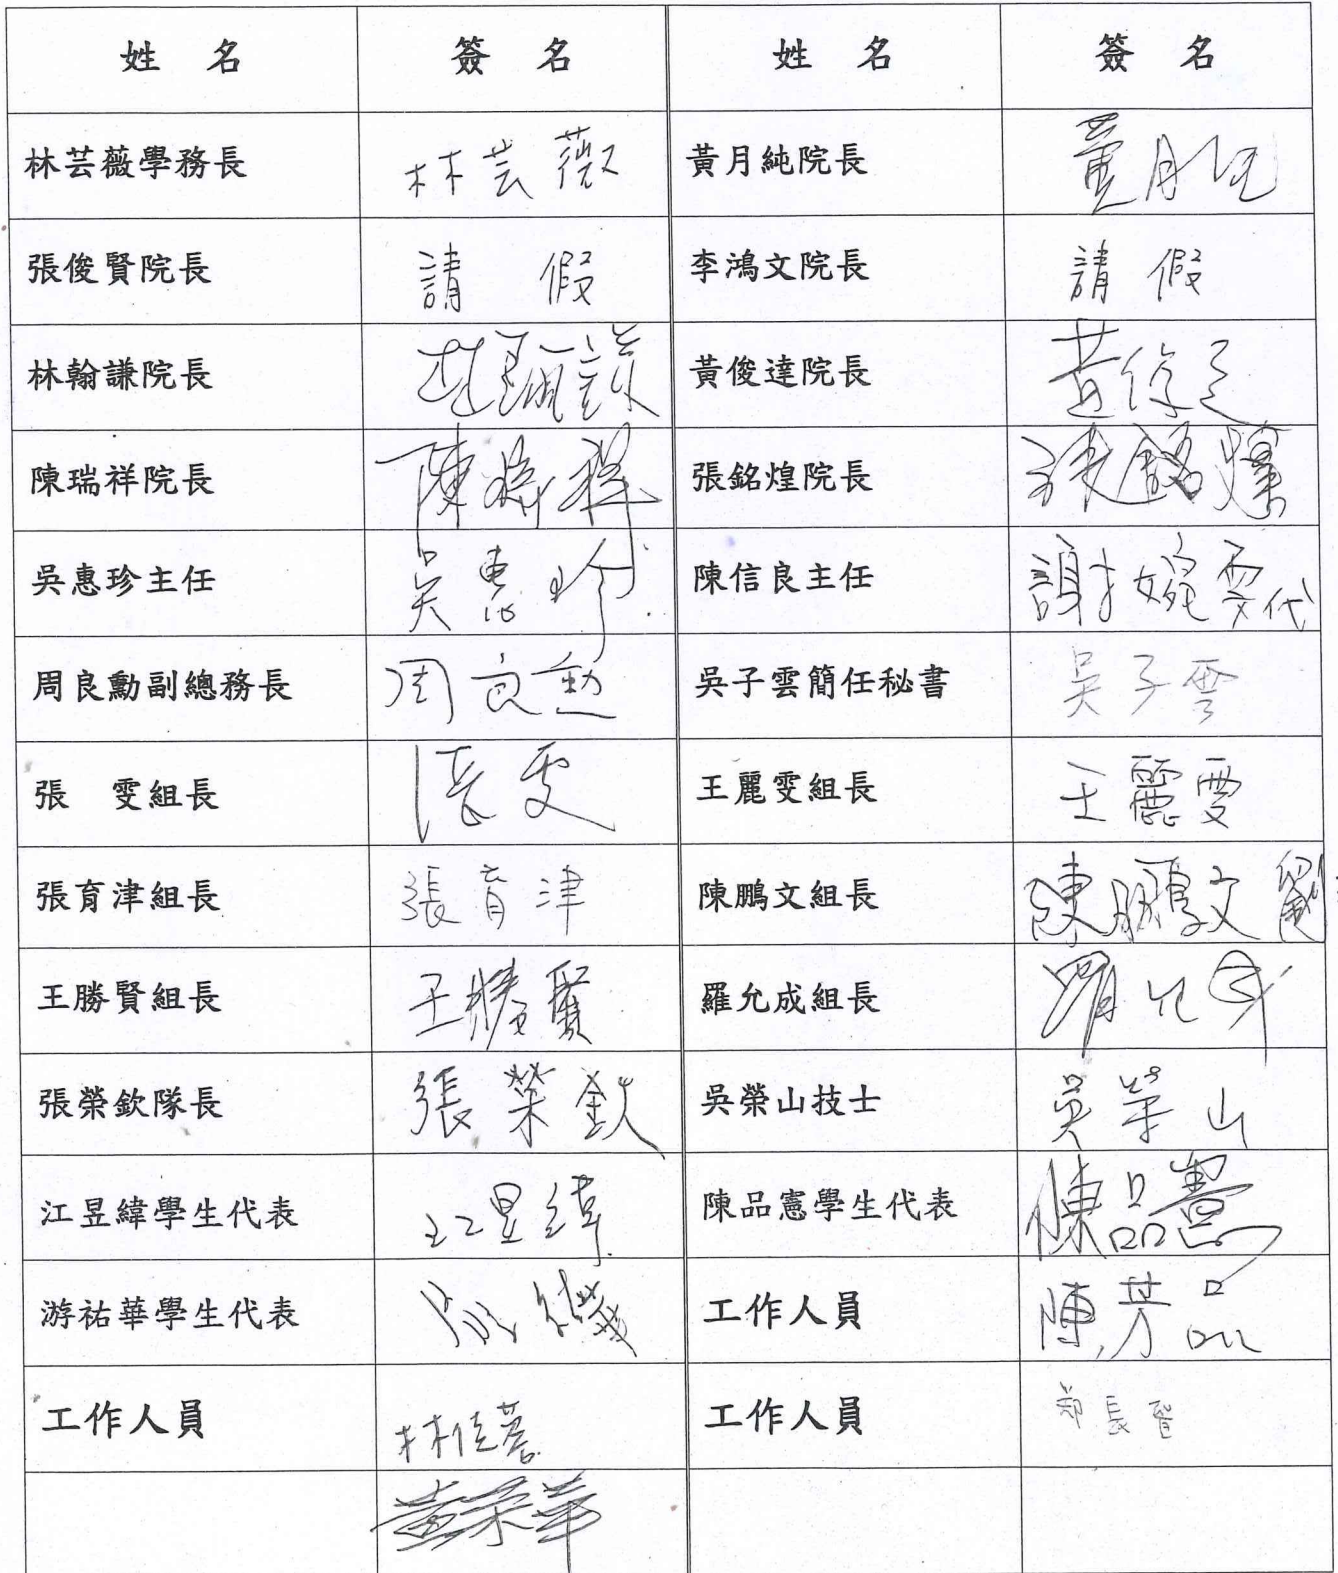 姓 名 簽 名 姓 名 簽 名
林芸薇學務長 林芸薇 黃月純院長 黃月純
張俊賢院長 請 假 李鴻文院長 請 假
林翰謙院長 林翰謙 黃俊達院長 黃俊達
陳瑞祥院長 陳瑞祥 張銘煌院長 張銘煌
吳惠珍主任 吳惠珍 陳信良主任 謝婉雯代
周良勳副總務長 周良勳 吳子雲簡任秘書 吳子雲
張 雯組長 張雯 王麗雯組長 王麗雯
張育津組長 張育津 陳鵬文組長 陳鵬文
王勝賢組長 王勝賢 羅允成組長 羅允成
張榮欽隊長 張榮欽 吳榮山技士 吳榮山
江昱緯學生代表 江昱緯 陳品憲學生代表 陳品憲
游祐華學生代表 工作人員 陳芳品
工作人員 林佳蓉 工作人員
黃榮華